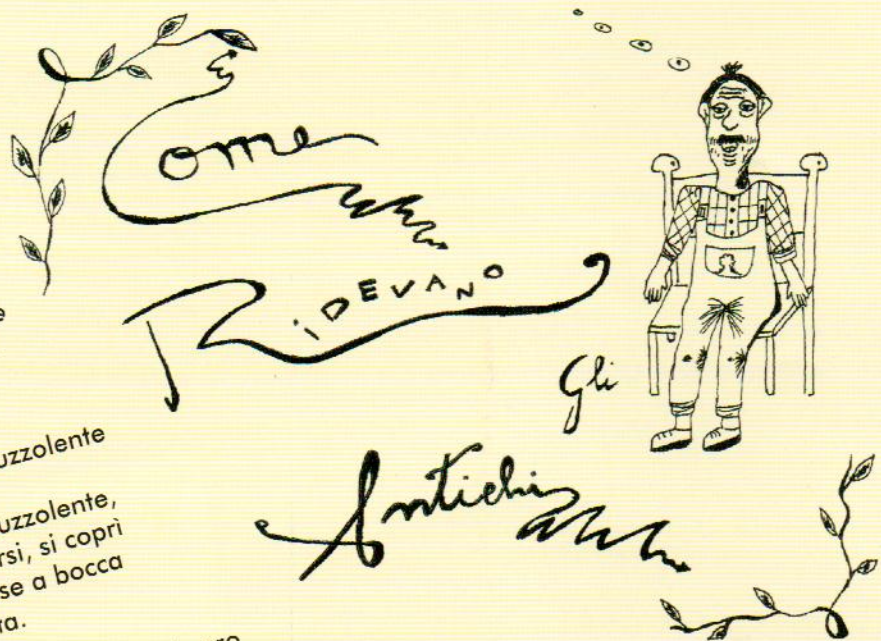 Come
RiDEVANO
Gli
Antichi
e
uzzolente
uzzolente,
rsi, si coprì
se a bocca
ta.